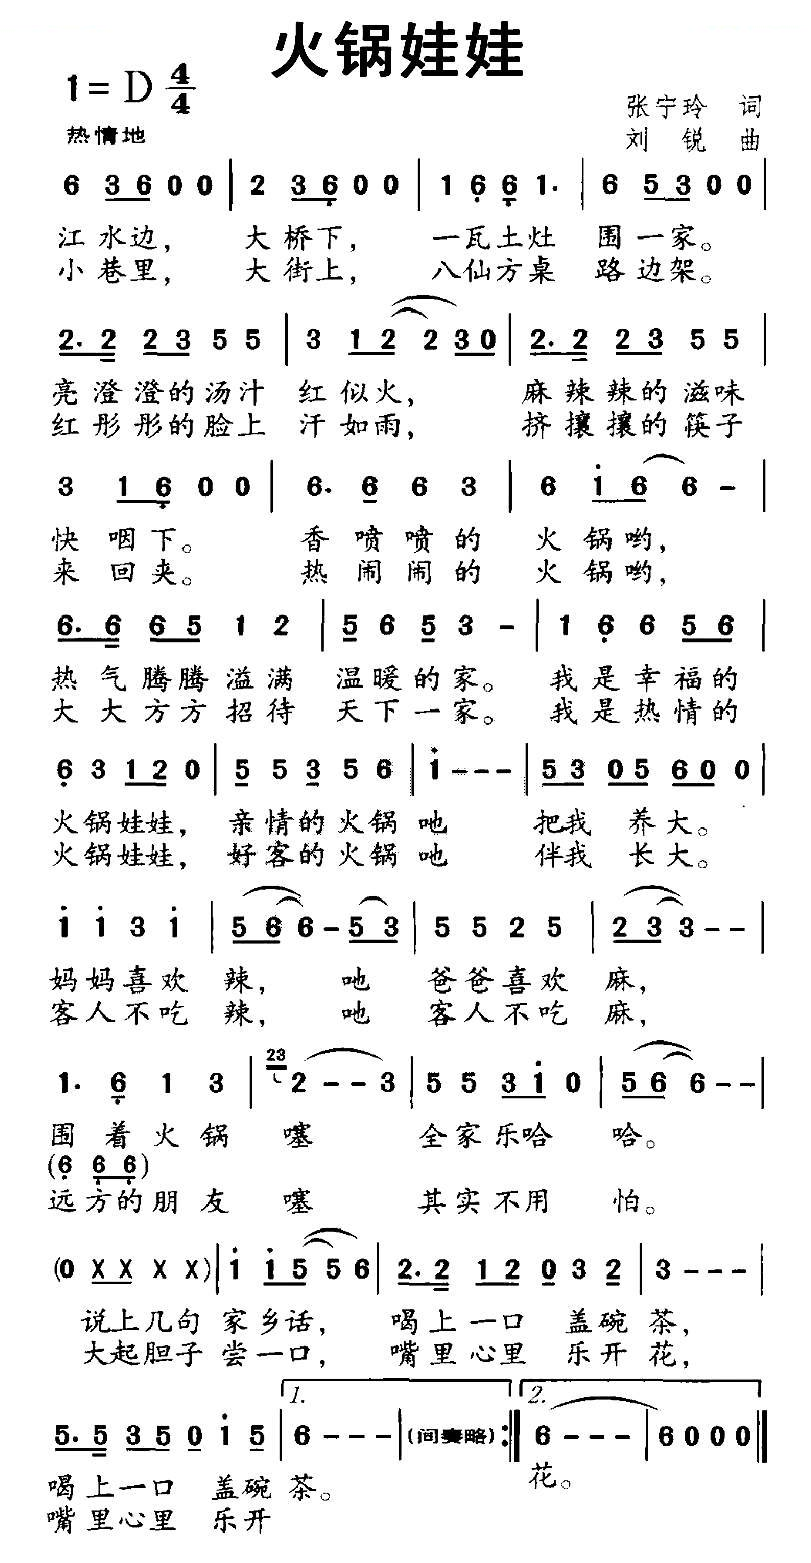 火锅娃娃
1=D 4/4
张宁玲 词
热情地
刘锐 曲
6 3 6 0 0 | 2 3 6 0 0 | 1 6 6 1. | 6 5 3 0 0 |
江水边， 大桥下， 一瓦土灶 围一家。
小巷里， 大街上， 八仙方桌 路边架。
2. 2 2 3 5 5 | 3 1 2 2 3 0 | 2. 2 2 3 5 5 |
亮澄澄的汤汁 红似火， 麻辣辣的滋味
红彤彤的脸上 汗如雨， 挤攘攘的筷子
3 1 6 0 0 | 6. 6 6 3 | 6 i 6 6 - |
快咽下。 香喷喷的 火锅哟，
来回夹。 热闹闹的 火锅哟，
6. 6 6 5 1 2 | 5 6 5 3 - | 1 6 6 5 6 |
热气腾腾溢满 温暖的家。 我是幸福的
大大方方招待 天下一家。 我是热情的
6 3 1 2 0 | 5 5 3 5 6 | i - - - | 5 3 0 5 6 0 0 |
火锅娃娃， 亲情的火锅吔 把我 养大。
火锅娃娃， 好客的火锅吔 伴我 长大。
i i 3 i | 5 6 6 - 5 3 | 5 5 2 5 | 2 3 3 - - |
妈妈喜欢 辣， 吔 爸爸喜欢 麻，
客人不吃 辣， 吔 客人不吃 麻，
1. 6 1 3 | 23 2 - - 3 | 5 5 3 i 0 | 5 6 6 - - |
围着火锅 噻 全家乐哈 哈。
(6 6 6)
远方的朋友 噻 其实不用 怕。
(0 X X X X) | i i 5 5 6 | 2. 2 1 2 0 3 2 | 3 - - - |
说上几句 家乡话， 喝上一口 盖碗茶，
大起胆子 尝一口， 嘴里心里 乐开花，
1. 2.
5. 5 3 5 0 i 5 | 6 - - - | (间奏略) :| 6 - - - | 6 0 0 0 ||
喝上一口 盖碗茶。 花。
嘴里心里 乐开